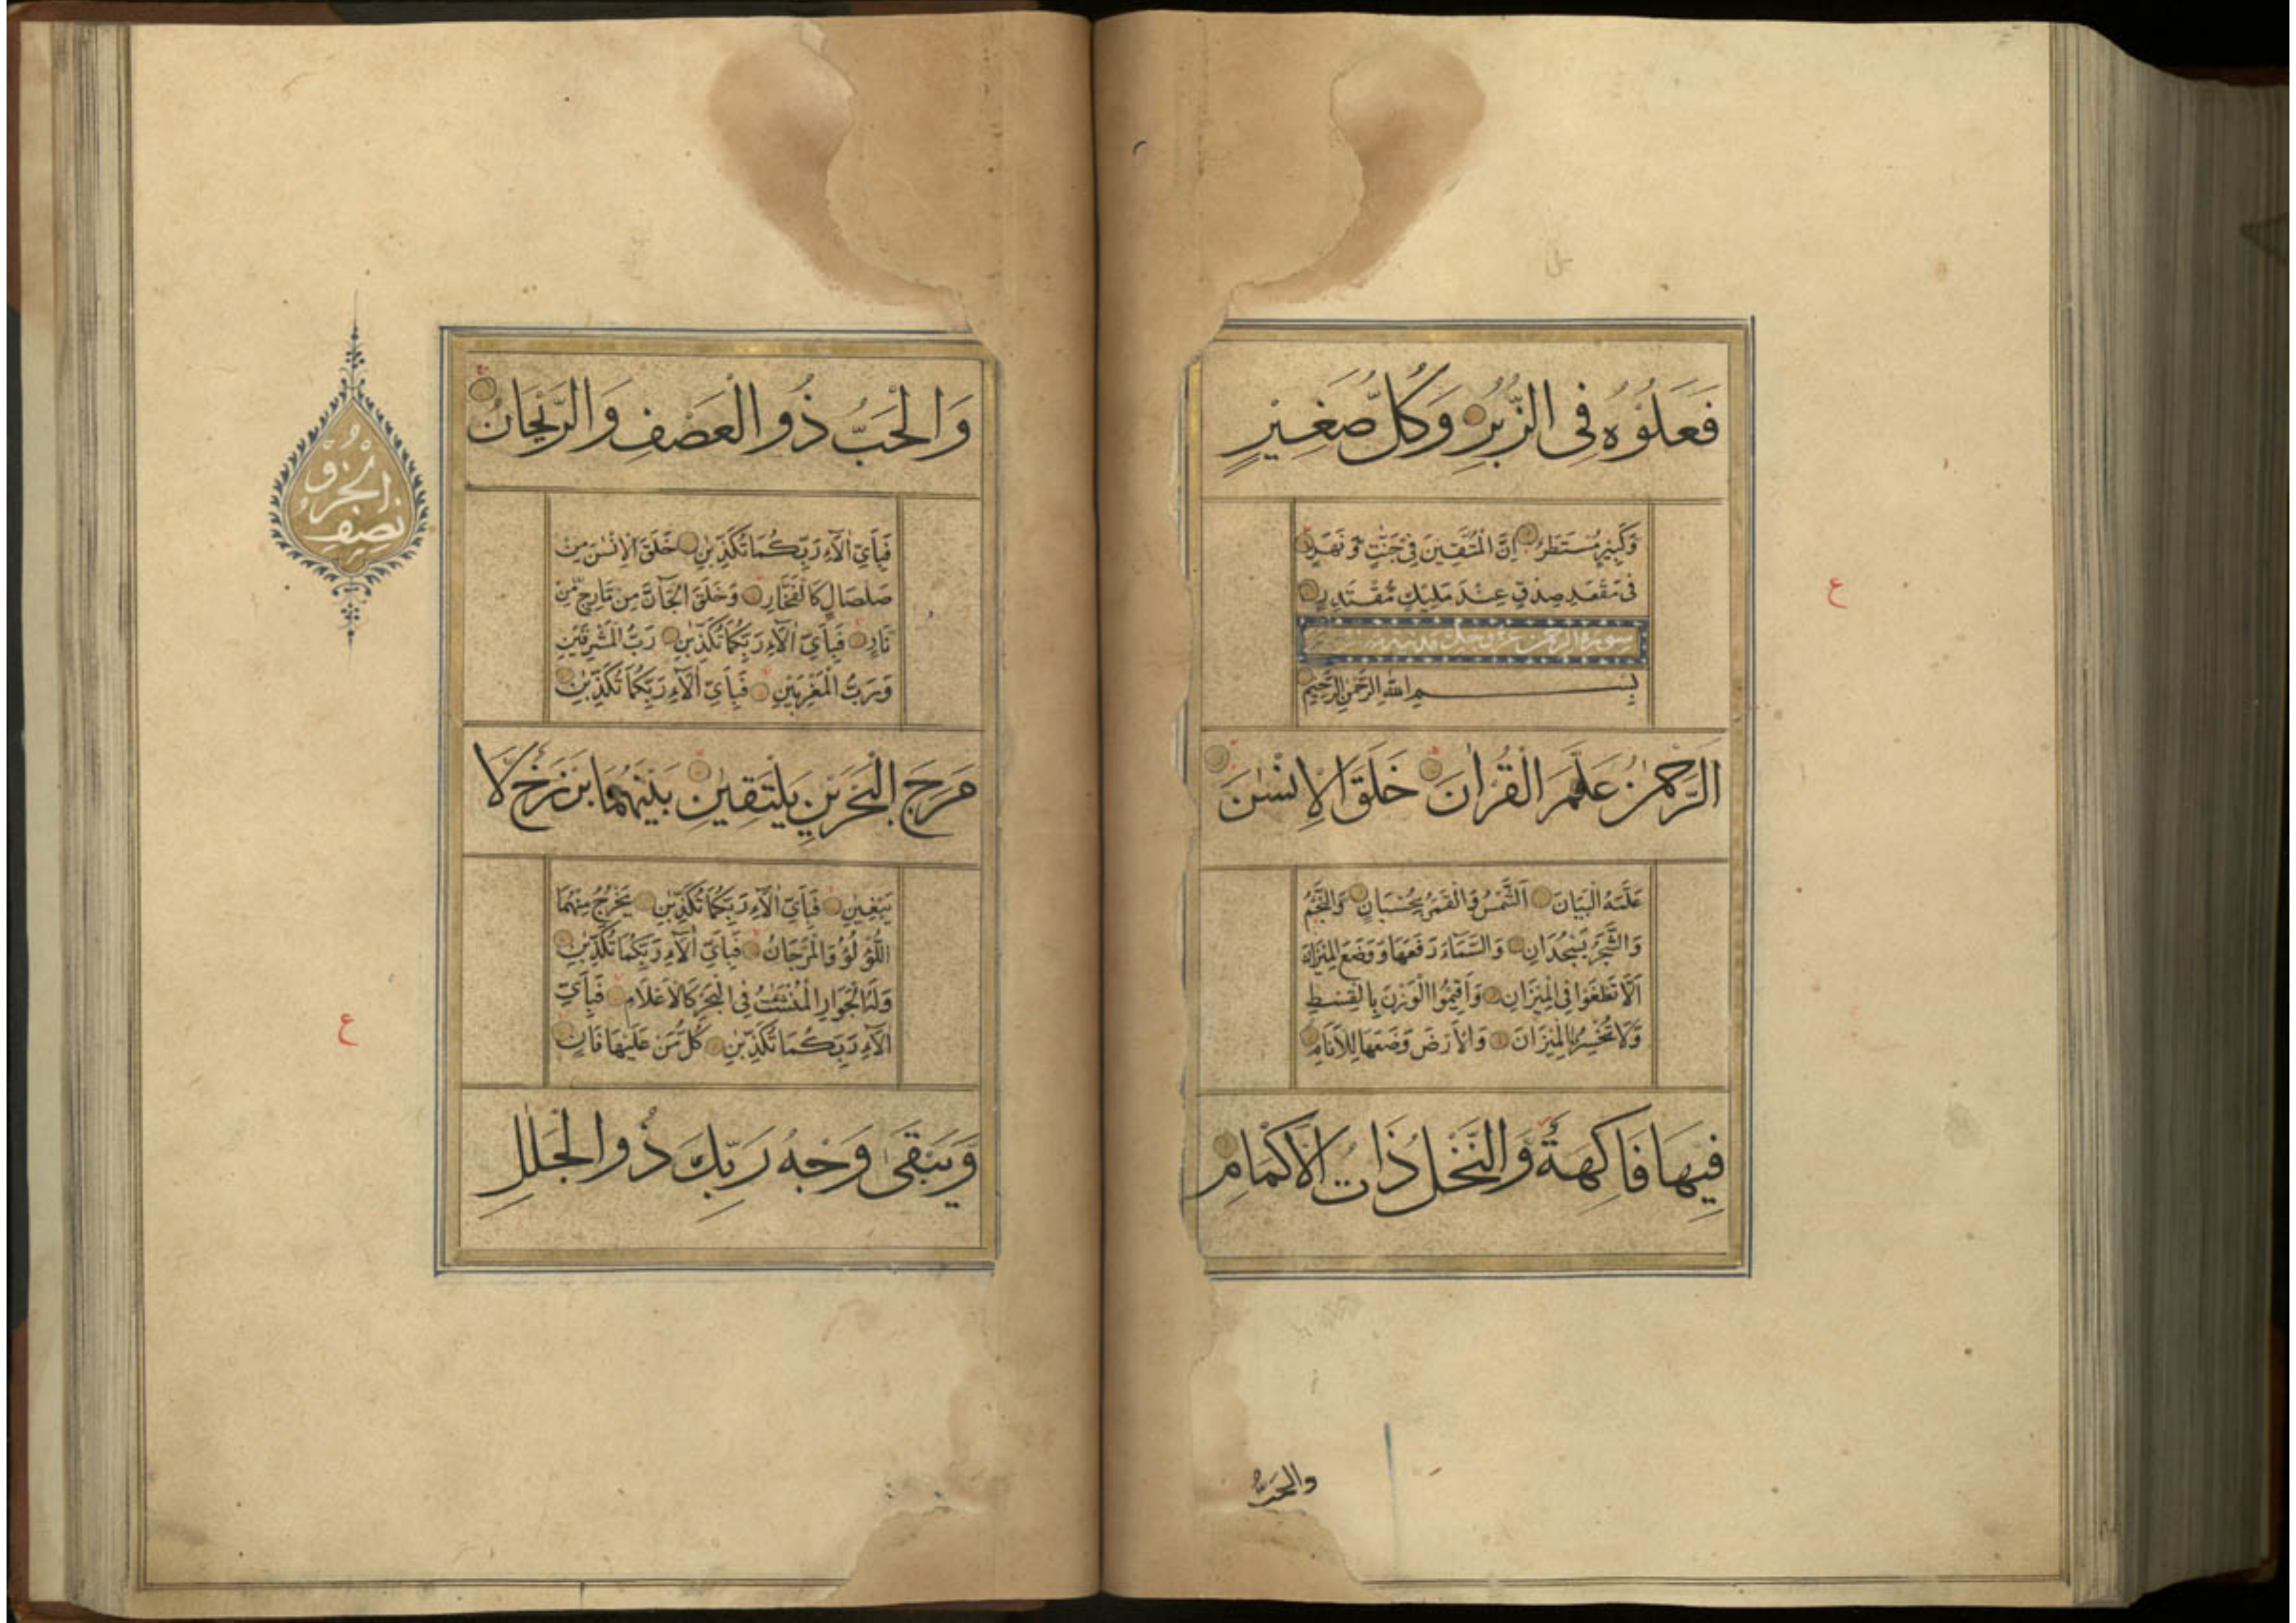 فَعَلُوْهُ فِى الزُّبُرِ وَكُلُّ صَغِيْرٍ
وَّكَبِيْرٍ مُّسْتَطَرٌ اِنَّ الْمُتَّقِيْنَ فِىْ جَنّٰتٍ وَّ نَهَرٍ
فِىْ مَقْعَدِ صِدْقٍ عِنْدَ مَلِيْكٍ مُّقْتَدِرٍ
سورة الرحمن عز وجل
بِسْمِ اللهِ الرَّحْمٰنِ الرَّحِيْمِ
اَلرَّحْمٰنُ عَلَّمَ الْقُرْاٰنَ خَلَقَ الْاِنْسٰنَ
عَلَّمَهُ الْبَيَانَ اَلشَّمْسُ وَالْقَمَرُ بِحُسْبَانٍ وَّالنَّجْمُ
وَالشَّجَرُ يَسْجُدَانِ وَالسَّمَآءَ رَفَعَهَا وَوَضَعَ الْمِيْزَانَ
اَلَّا تَطْغَوْا فِى الْمِيْزَانِ وَاَقِيْمُوا الْوَزْنَ بِالْقِسْطِ
وَلَا تُخْسِرُوا الْمِيْزَانَ وَالْاَرْضَ وَضَعَهَا لِلْاَنَامِ
فِيْهَا فَاكِهَةٌ وَّالنَّخْلُ ذَاتُ الْاَكْمَامِ
والحبّ
وَالْحَبُّ ذُو الْعَصْفِ وَالرَّيْحَانُ
فَبِاَىِّ اٰلَآءِ رَبِّكُمَا تُكَذِّبٰنِ خَلَقَ الْاِنْسٰنَ مِنْ
صَلْصَالٍ كَالْفَخَّارِ وَخَلَقَ الْجَآنَّ مِنْ مَّارِجٍ مِّنْ
نَارٍ فَبِاَىِّ اٰلَآءِ رَبِّكُمَا تُكَذِّبٰنِ رَبُّ الْمَشْرِقَيْنِ
وَرَبُّ الْمَغْرِبَيْنِ فَبِاَىِّ اٰلَآءِ رَبِّكُمَا تُكَذِّبٰنِ
مَرَجَ الْبَحْرَيْنِ يَلْتَقِيٰنِ بَيْنَهُمَا بَرْزَخٌ لَّا
يَبْغِيٰنِ فَبِاَىِّ اٰلَآءِ رَبِّكُمَا تُكَذِّبٰنِ يَخْرُجُ مِنْهُمَا
اللُّؤْلُؤُ وَالْمَرْجَانُ فَبِاَىِّ اٰلَآءِ رَبِّكُمَا تُكَذِّبٰنِ
وَلَهُ الْجَوَارِ الْمُنْشَئٰتُ فِى الْبَحْرِ كَالْاَعْلَامِ فَبِاَىِّ
اٰلَآءِ رَبِّكُمَا تُكَذِّبٰنِ كُلُّ مَنْ عَلَيْهَا فَانٍ
وَّيَبْقٰى وَجْهُ رَبِّكَ ذُو الْجَلٰلِ
نصف
الجزو
ع
ع